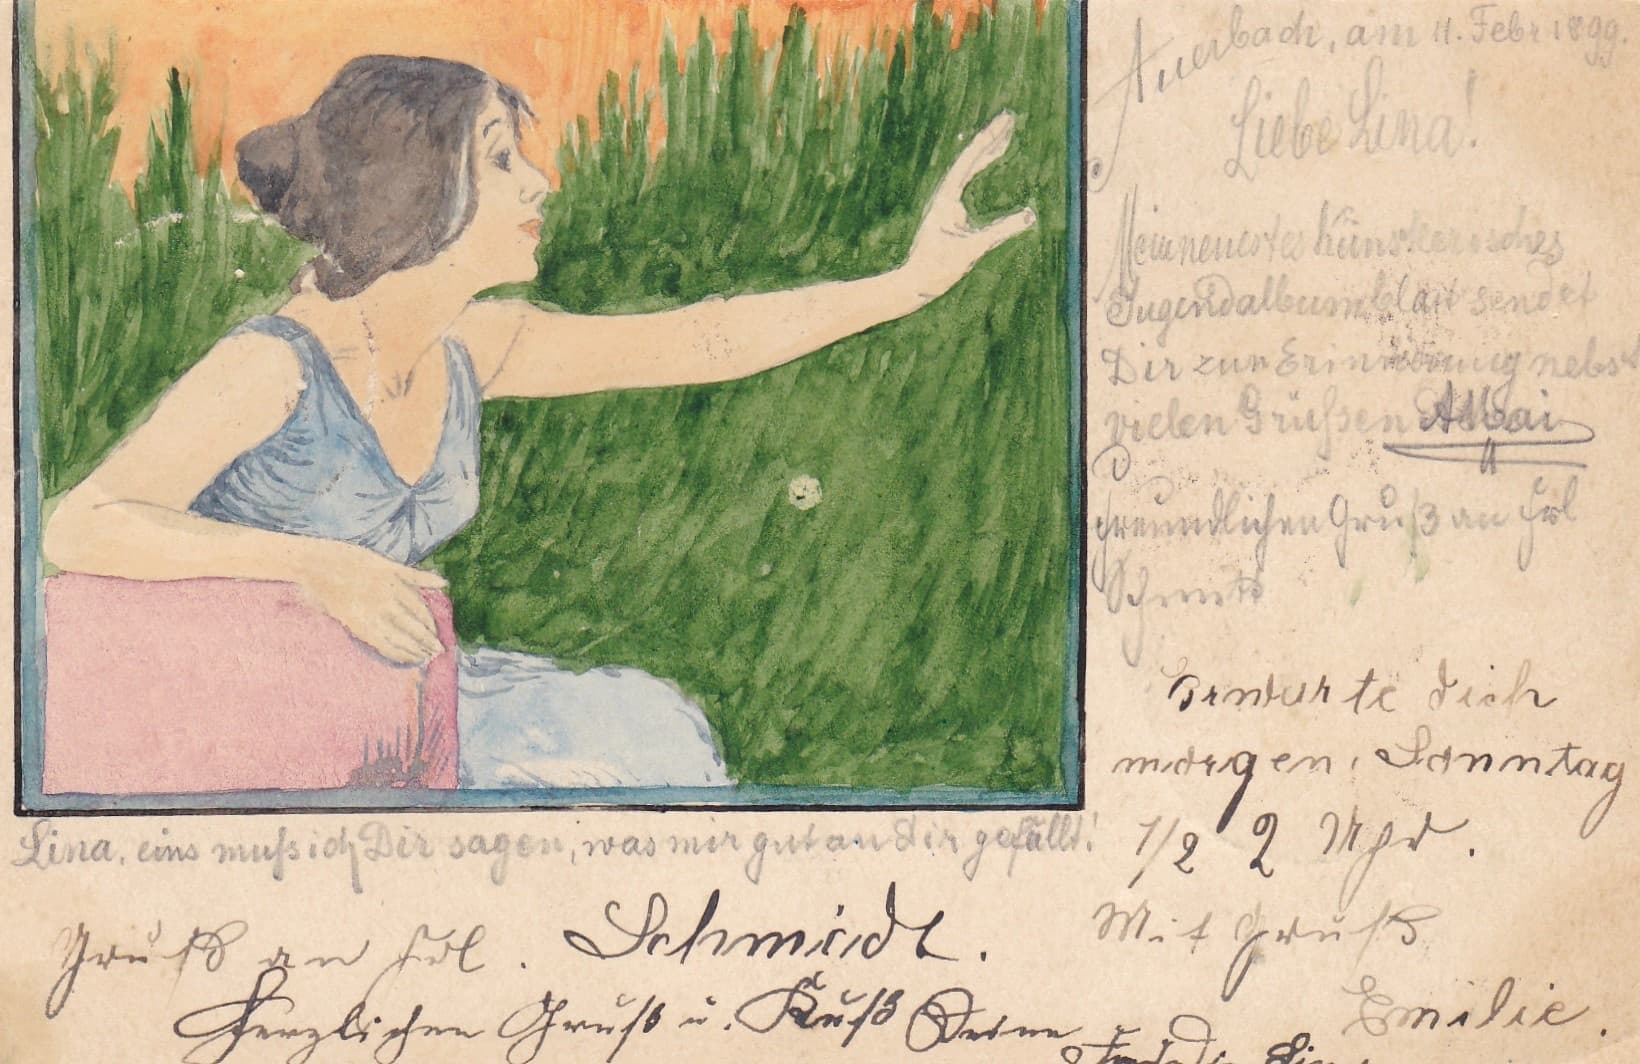 Auerbach, am 11. Febr 1899.
Liebe Lina!
Mein neuestes künstlerisches
Jugendalbumblatt sendet
Dir zur Erinnerung nebst
vielen Grüßen
freundlichen Gruß an Frl
Lina, eins muß ich Dir sagen, was mir gut an Dir gefällt!
Erwarte dich
morgen, Sonntag
1/2 2 Uhr.
Mit Gruß
Emilie.
Gruß an Frl. Schmidt.
Herzlichen Gruß u. Kuß Deine